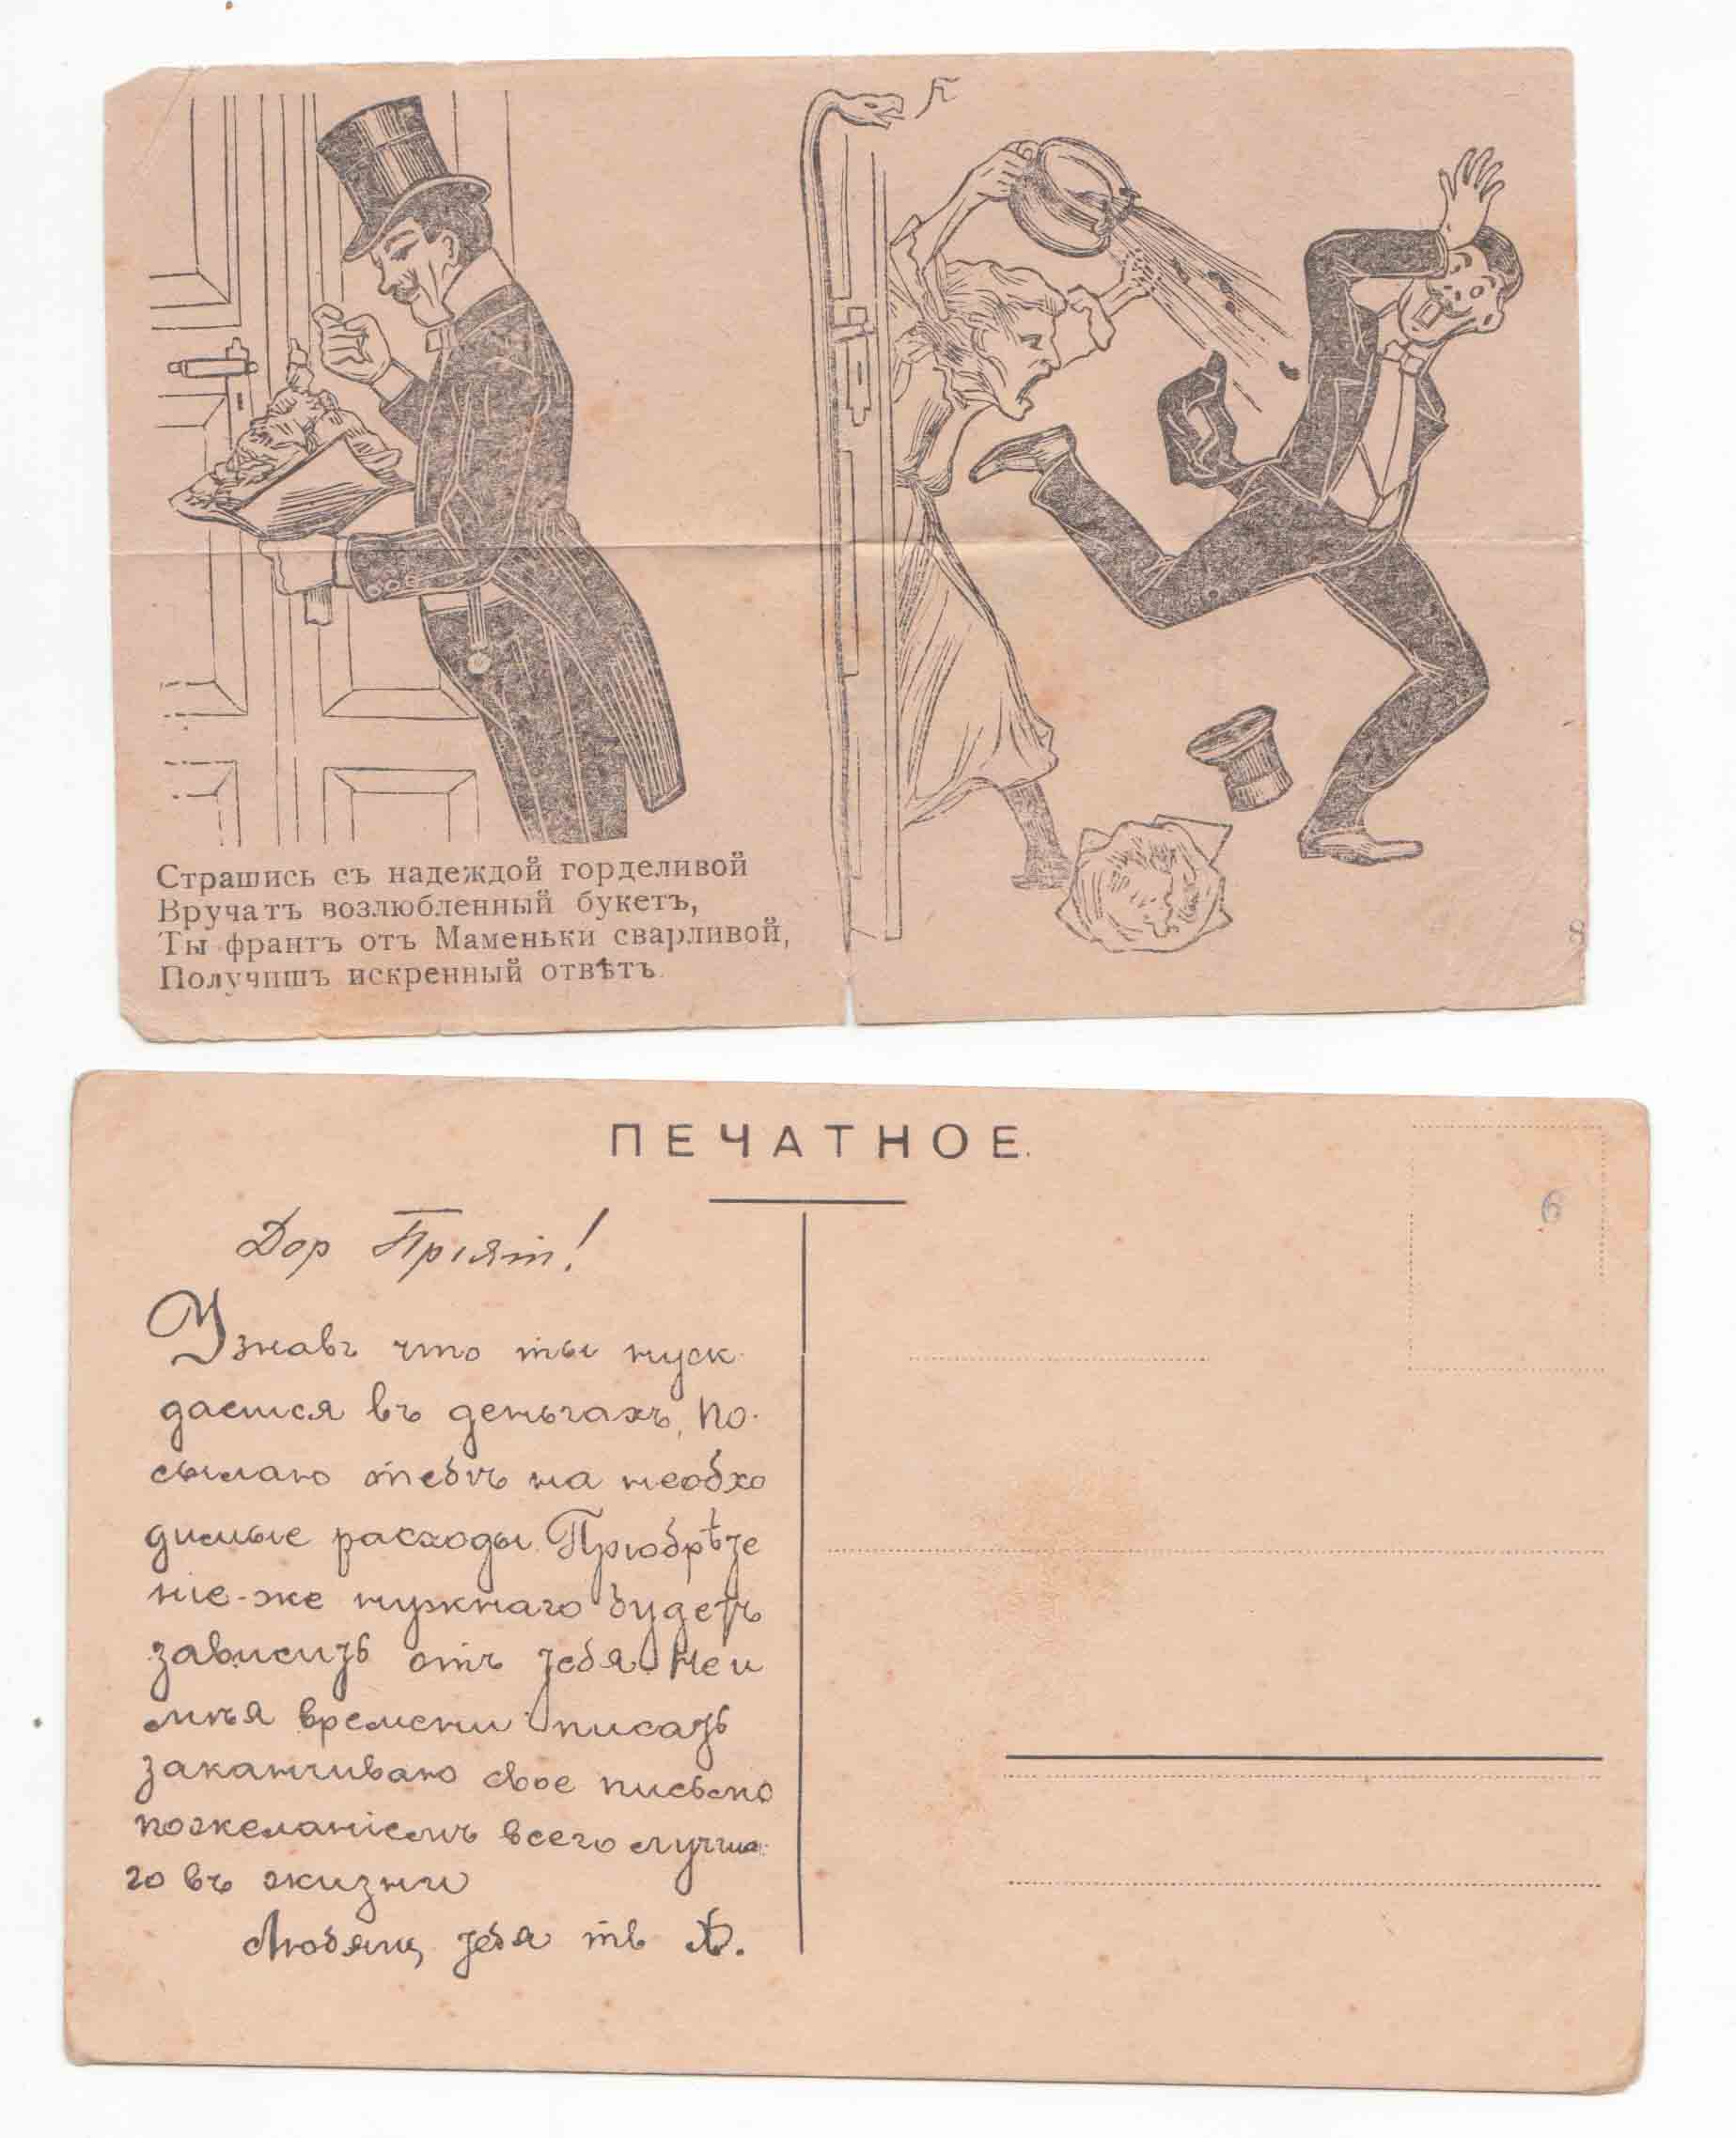 Страшись съ надеждой горделивой
Вручатъ возлюбленный букетъ,
Ты франтъ отъ Маменьки сварливой,
Получишъ искренный отвѣтъ.
8
ПЕЧАТНОЕ.
6
Дор Пріят!
Узнавъ что ты нуж-
даешся въ деньгахъ, по-
сылаю тебѣ на необхо
димые расходы. Пріобрѣте
ніе-же нужнаго будетъ
зависить отъ тебя. Не и
мѣя времени писать
заканчиваю свое письмо
пожеланіемъ всего лучша-
го въ жизни
Любящ тебя тв